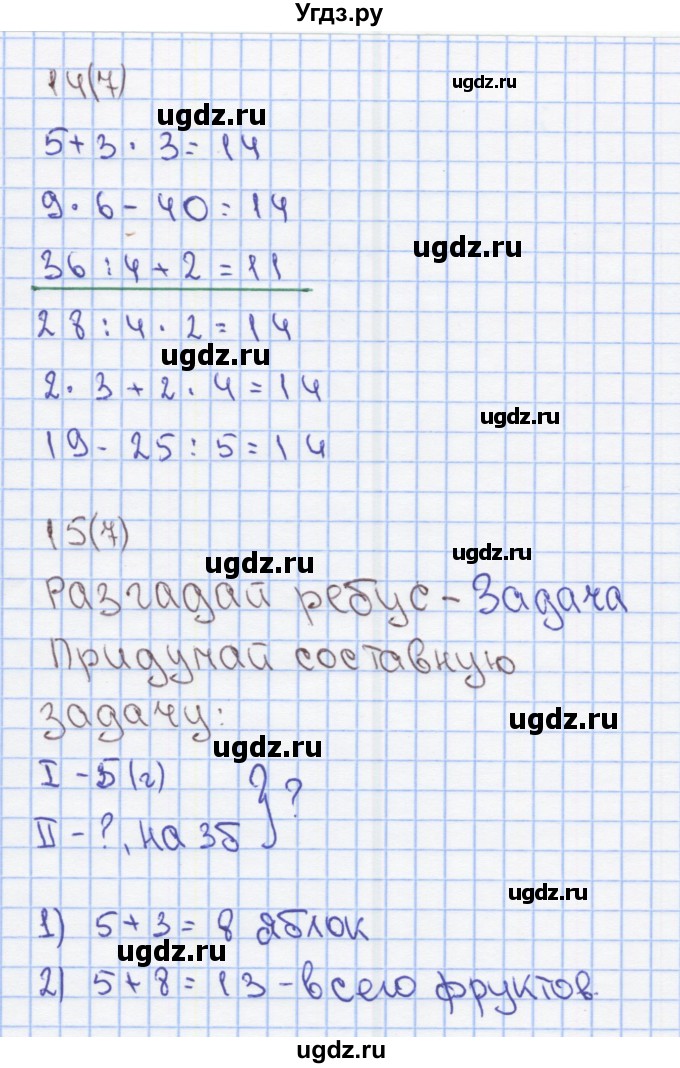 Угдз.ру
14(7)
ugdz.ru
ugdz.ru
5+3·3=14
9·6-40=14
ugdz.ru
36:4+2=11
28:4·2=14
ugdz.ru
2·3+2·4=14
ugdz.ru
19-25:5=14
15(7)
ugdz.ru
ugdz.ru
Разгадай ребус - Задача
Придумай составную
задачу:
ugdz.ru
ugdz.ru
I - 5 (г) } ?
II - ?, на 3б
ugdz.ru
1) 5+3=8 яблок
ugdz.ru
2) 5+8=13 - всего фруктов.
ugdz.ru